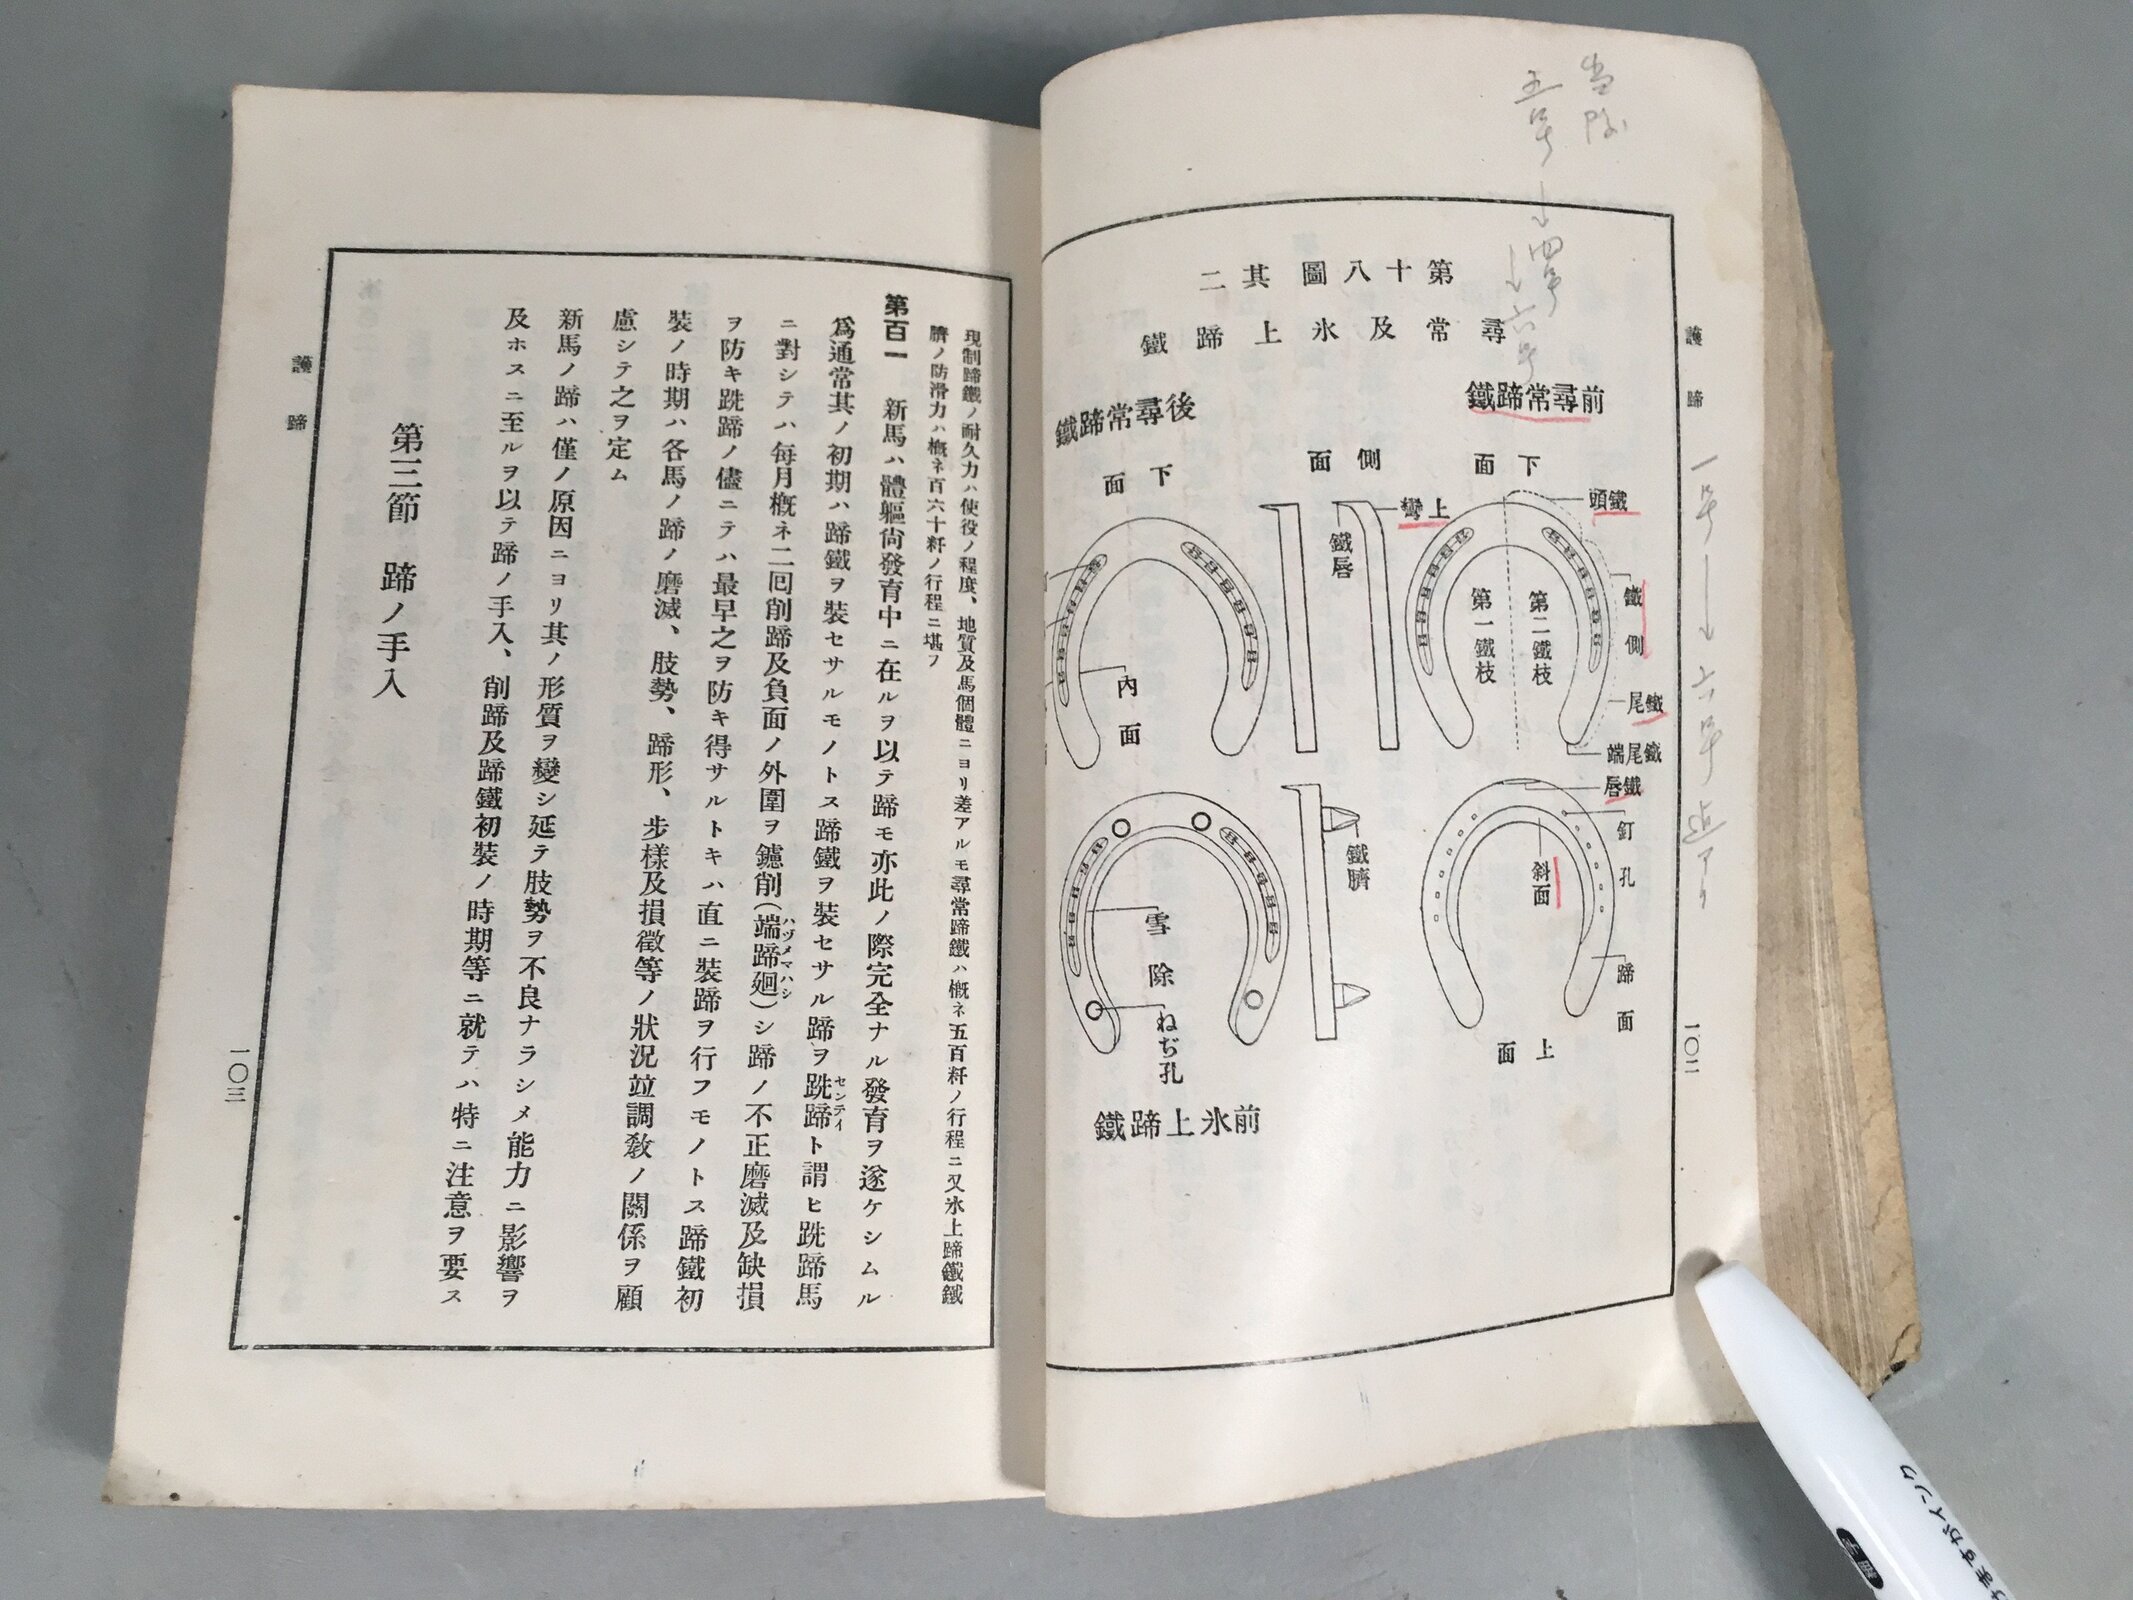 護蹄
一〇二
第十八圖 其二
尋常及氷上蹄鐵
前尋常蹄鐵
下面
側面
後尋常蹄鐵
下面
鐵頭
上彎
鐵唇
鐵側
第二鐵枝
第一鐵枝
內面
鐵尾
鐵尾端
鐵唇
釘孔
斜面
蹄面
上面
鐵臍
雪除
ねぢ孔
前氷上蹄鐵
當隊
五号→四号
→六号
一号→六号迄アリ
現制蹄鐵ノ耐久力ハ使役ノ程度、地質及馬個體ニヨリ差アルモ尋常蹄鐵ハ槪ネ五百粁ノ行程ニ又氷上蹄鐵鐵
臍ノ防滑力ハ槪ネ百六十粁ノ行程ニ堪フ
第百一 新馬ハ體軀尙發育中ニ在ルヲ以テ蹄モ亦此ノ際完全ナル發育ヲ遂ケシムル
爲通常其ノ初期ハ蹄鐵ヲ裝セサルモノトス蹄鐵ヲ裝セサル蹄ヲ跣蹄ト謂ヒ跣蹄馬
センテイ
ニ對シテハ每月槪ネ二回削蹄及負面ノ外圍ヲ鑢削(端蹄廻)シ蹄ノ不正磨滅及缺損
ハヅメマハシ
ヲ防キ跣蹄ノ儘ニテハ最早之ヲ防キ得サルトキハ直ニ裝蹄ヲ行フモノトス蹄鐵初
裝ノ時期ハ各馬ノ蹄ノ磨滅、肢勢、蹄形、步樣及損徵等ノ狀況竝調敎ノ關係ヲ顧
慮シテ之ヲ定ム
新馬ノ蹄ハ僅ノ原因ニヨリ其ノ形質ヲ變シ延テ肢勢ヲ不良ナラシメ能力ニ影響ヲ
及ホスニ至ルヲ以テ蹄ノ手入、削蹄及蹄鐵初裝ノ時期等ニ就テハ特ニ注意ヲ要ス
第三節 蹄ノ手入
護蹄
一〇三
ますがインク
細字